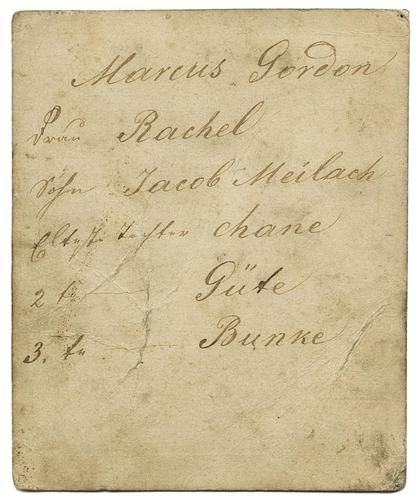 Marcus Gordon
Frau Rachel
Sohn Jacob Meilach
Elteste Tochter chane
2 te Güte
3. te Bunke